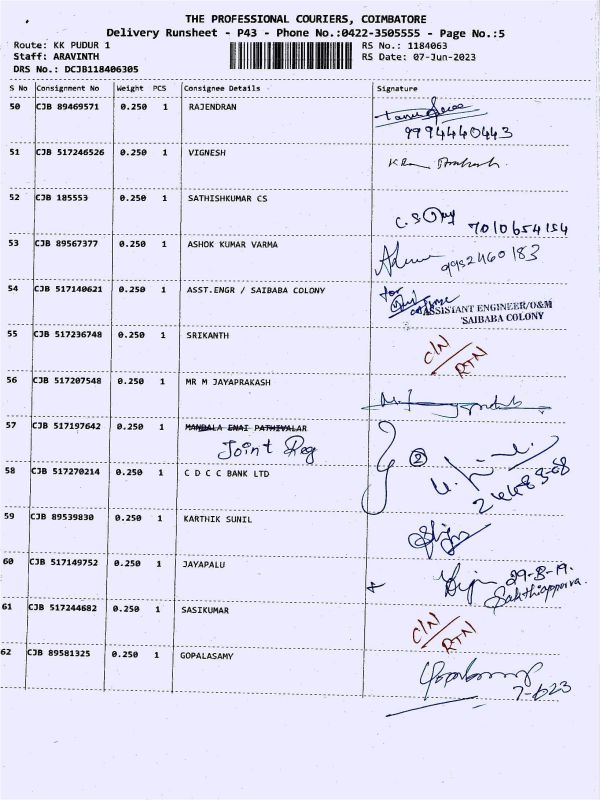 THE PROFESSIONAL COURIERS, COIMBATORE
Delivery Runsheet - P43 - Phone No.:0422-3505555 - Page No.:5
Route: KK PUDUR 1 RS No.: 1184063
Staff: ARAVINTH RS Date: 07-Jun-2023
DRS No.: DCJB118406305
S No Consignment No Weight PCS Consignee Details Signature
50 CJB 89469571 0.250 1 RAJENDRAN
9994440443
51 CJB 517246526 0.250 1 VIGNESH
52 CJB 185553 0.250 1 SATHISHKUMAR CS
7010654154
53 CJB 89567377 0.250 1 ASHOK KUMAR VARMA
9952460183
54 CJB 517140621 0.250 1 ASST.ENGR / SAIBABA COLONY
for
ASSISTANT ENGINEER/O&M
SAIBABA COLONY
55 CJB 517236748 0.250 1 SRIKANTH
C/N
RTN
56 CJB 517207548 0.250 1 MR M JAYAPRAKASH
57 CJB 517197642 0.250 1 MANDALA ENAI PATHIVALAR
Joint Reg
②
58 CJB 517270214 0.250 1 C D C C BANK LTD
59 CJB 89539830 0.250 1 KARTHIK SUNIL
60 CJB 517149752 0.250 1 JAYAPALU
61 CJB 517244682 0.250 1 SASIKUMAR
C/N
RTN
62 CJB 89581325 0.250 1 GOPALASAMY